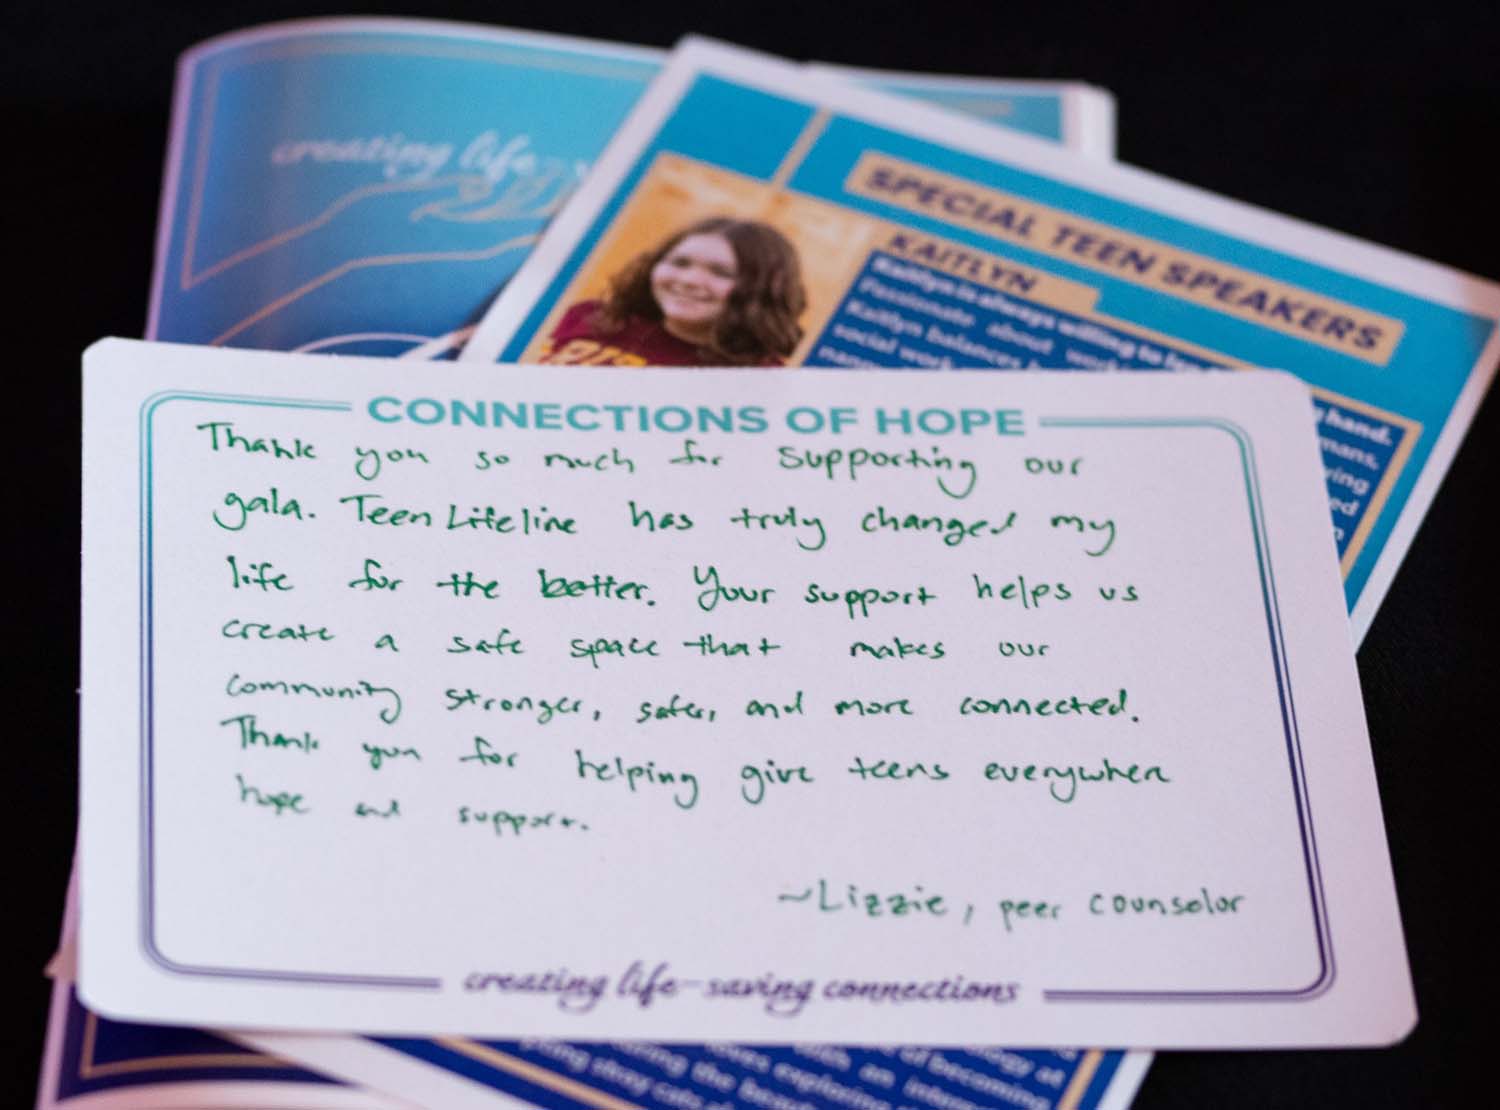 creating life-
SPECIAL TEEN SPEAKERS
KAITLYN
Kaitlyn is always willing to
Passionate about
Kaitlyn balances
social work
hand.
CONNECTIONS OF HOPE
Thank you so much for supporting our
gala. Teen Lifeline has truly changed my
life for the better. Your support helps us
create a safe space that makes our
community stronger, safer, and more connected.
Thank you for helping give teens everywhere
hope and support.
~Lizzie, peer counselor
creating life-saving connections
of becoming